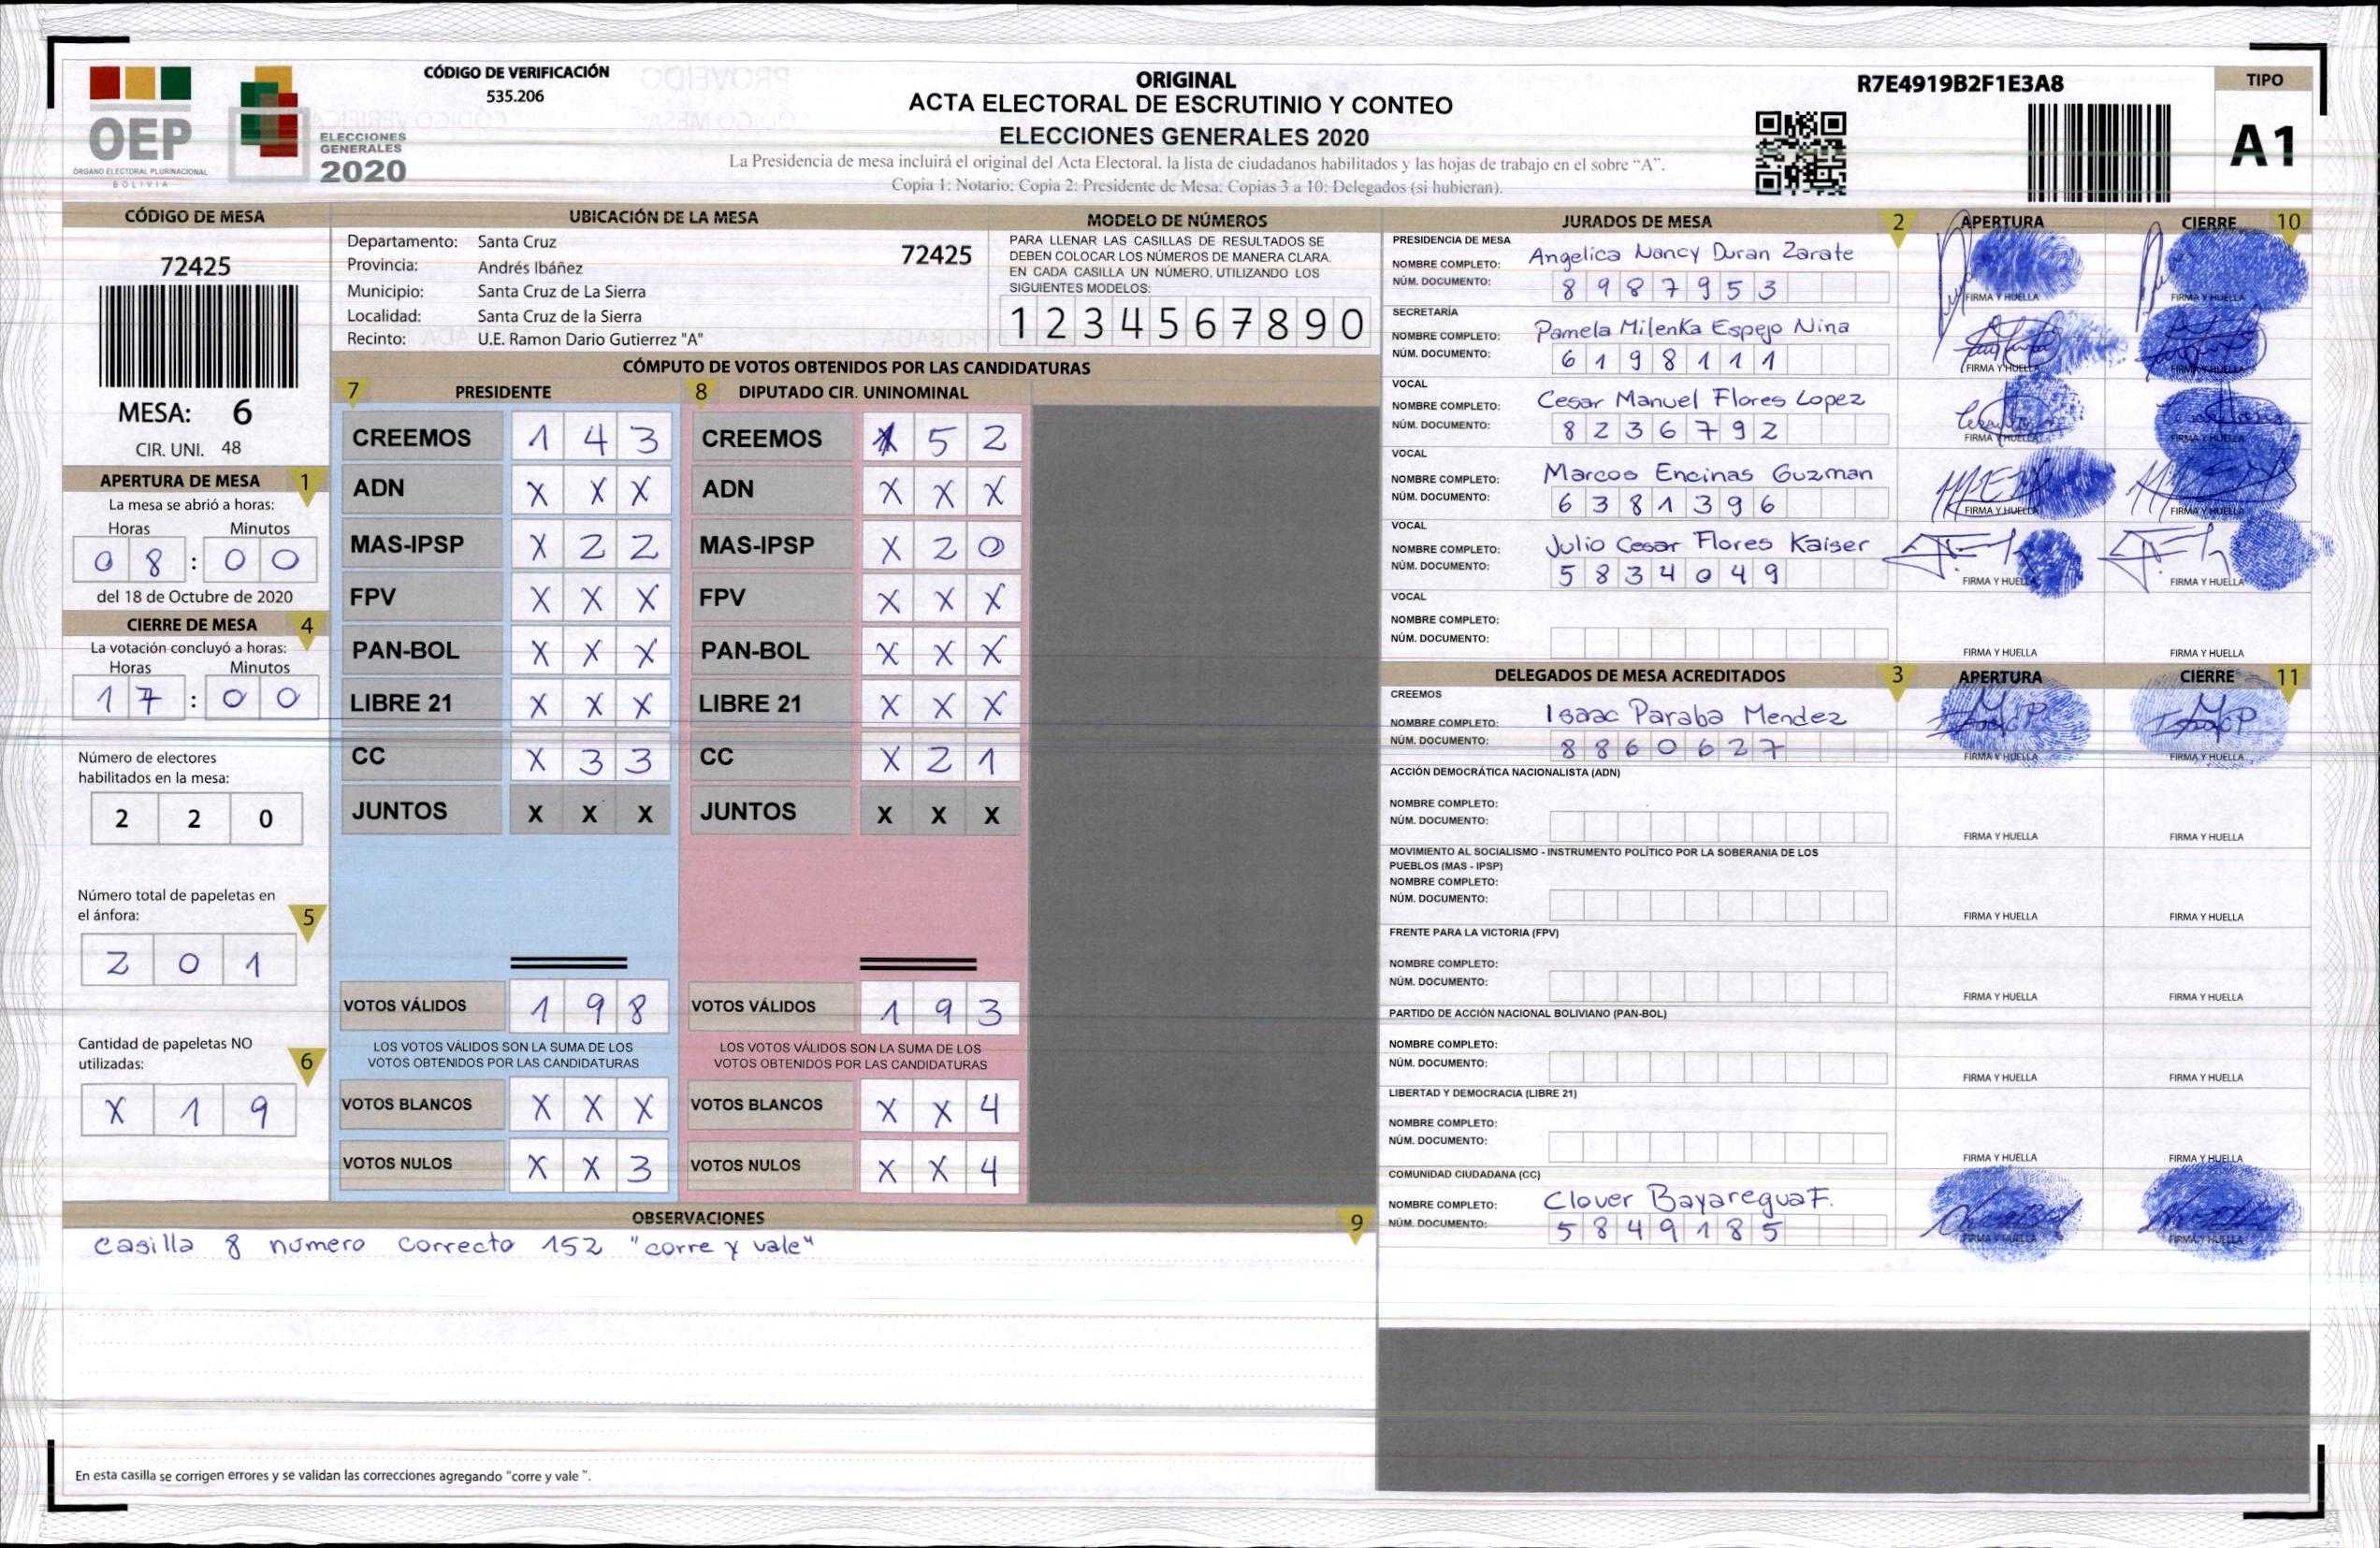 OEP
ÓRGANO ELECTORAL PLURINACIONAL
BOLIVIA
ELECCIONES
GENERALES
2020
CÓDIGO DE VERIFICACIÓN
535.206
ORIGINAL
ACTA ELECTORAL DE ESCRUTINIO Y CONTEO
ELECCIONES GENERALES 2020
La Presidencia de mesa incluirá el original del Acta Electoral, la lista de ciudadanos habilitados y las hojas de trabajo en el sobre "A".
Copia 1: Notario; Copia 2: Presidente de Mesa; Copias 3 a 10: Delegados (si hubieran).
R7E4919B2F1E3A8
TIPO
A1
CÓDIGO DE MESA
72425
MESA: 6
CIR. UNI. 48
APERTURA DE MESA 1
La mesa se abrió a horas:
Horas Minutos
0 8 : 0 0
del 18 de Octubre de 2020
CIERRE DE MESA 4
La votación concluyó a horas:
Horas Minutos
1 7 : 0 0
Número de electores
habilitados en la mesa:
2 2 0
Número total de papeletas en
el ánfora: 5
2 0 1
Cantidad de papeletas NO
utilizadas: 6
X 1 9
UBICACIÓN DE LA MESA
Departamento: Santa Cruz 72425
Provincia: Andrés Ibáñez
Municipio: Santa Cruz de La Sierra
Localidad: Santa Cruz de la Sierra
Recinto: U.E. Ramon Dario Gutierrez "A"
MODELO DE NÚMEROS
PARA LLENAR LAS CASILLAS DE RESULTADOS SE
DEBEN COLOCAR LOS NÚMEROS DE MANERA CLARA.
EN CADA CASILLA UN NÚMERO, UTILIZANDO LOS
SIGUIENTES MODELOS:
1 2 3 4 5 6 7 8 9 0
CÓMPUTO DE VOTOS OBTENIDOS POR LAS CANDIDATURAS
7 PRESIDENTE 8 DIPUTADO CIR. UNINOMINAL
CREEMOS 1 4 3 CREEMOS 1 5 2
ADN X X X ADN X X X
MAS-IPSP X 2 2 MAS-IPSP X 2 0
FPV X X X FPV X X X
PAN-BOL X X X PAN-BOL X X X
LIBRE 21 X X X LIBRE 21 X X X
CC X 3 3 CC X 2 1
JUNTOS X X X JUNTOS X X X
VOTOS VÁLIDOS 1 9 8 VOTOS VÁLIDOS 1 9 3
LOS VOTOS VÁLIDOS SON LA SUMA DE LOS LOS VOTOS VÁLIDOS SON LA SUMA DE LOS
VOTOS OBTENIDOS POR LAS CANDIDATURAS VOTOS OBTENIDOS POR LAS CANDIDATURAS
VOTOS BLANCOS X X X VOTOS BLANCOS X X 4
VOTOS NULOS X X 3 VOTOS NULOS X X 4
OBSERVACIONES 9
Casilla 8 numero correcto 152 "corre y vale"
En esta casilla se corrigen errores y se validan las correcciones agregando "corre y vale ".
JURADOS DE MESA 2 APERTURA CIERRE 10
PRESIDENCIA DE MESA
NOMBRE COMPLETO: Angelica Nancy Duran Zarate
NÚM. DOCUMENTO: 8 9 8 7 9 5 3
FIRMA Y HUELLA FIRMA Y HUELLA
SECRETARÍA
NOMBRE COMPLETO: Pamela Milenka Espejo Nina
NÚM. DOCUMENTO: 6 1 9 8 1 1 1
FIRMA Y HUELLA FIRMA Y HUELLA
VOCAL
NOMBRE COMPLETO: Cesar Manuel Flores Lopez
NÚM. DOCUMENTO: 8 2 3 6 7 9 2
FIRMA Y HUELLA FIRMA Y HUELLA
VOCAL
NOMBRE COMPLETO: Marcos Encinas Guzman
NÚM. DOCUMENTO: 6 3 8 1 3 9 6
FIRMA Y HUELLA FIRMA Y HUELLA
VOCAL
NOMBRE COMPLETO: Julio Cesar Flores Kaiser
NÚM. DOCUMENTO: 5 8 3 4 0 4 9
FIRMA Y HUELLA FIRMA Y HUELLA
VOCAL
NOMBRE COMPLETO:
NÚM. DOCUMENTO:
FIRMA Y HUELLA FIRMA Y HUELLA
DELEGADOS DE MESA ACREDITADOS 3 APERTURA CIERRE 11
CREEMOS
NOMBRE COMPLETO: Isaac Paraba Mendez
NÚM. DOCUMENTO: 8 8 6 0 6 2 7
FIRMA Y HUELLA FIRMA Y HUELLA
ACCIÓN DEMOCRÁTICA NACIONALISTA (ADN)
NOMBRE COMPLETO:
NÚM. DOCUMENTO:
FIRMA Y HUELLA FIRMA Y HUELLA
MOVIMIENTO AL SOCIALISMO - INSTRUMENTO POLÍTICO POR LA SOBERANIA DE LOS
PUEBLOS (MAS - IPSP)
NOMBRE COMPLETO:
NÚM. DOCUMENTO:
FIRMA Y HUELLA FIRMA Y HUELLA
FRENTE PARA LA VICTORIA (FPV)
NOMBRE COMPLETO:
NÚM. DOCUMENTO:
FIRMA Y HUELLA FIRMA Y HUELLA
PARTIDO DE ACCIÓN NACIONAL BOLIVIANO (PAN-BOL)
NOMBRE COMPLETO:
NÚM. DOCUMENTO:
FIRMA Y HUELLA FIRMA Y HUELLA
LIBERTAD Y DEMOCRACIA (LIBRE 21)
NOMBRE COMPLETO:
NÚM. DOCUMENTO:
FIRMA Y HUELLA FIRMA Y HUELLA
COMUNIDAD CIUDADANA (CC)
NOMBRE COMPLETO: Clover Bayaregua F.
NÚM. DOCUMENTO: 5 8 4 9 1 8 5
FIRMA Y HUELLA FIRMA Y HUELLA